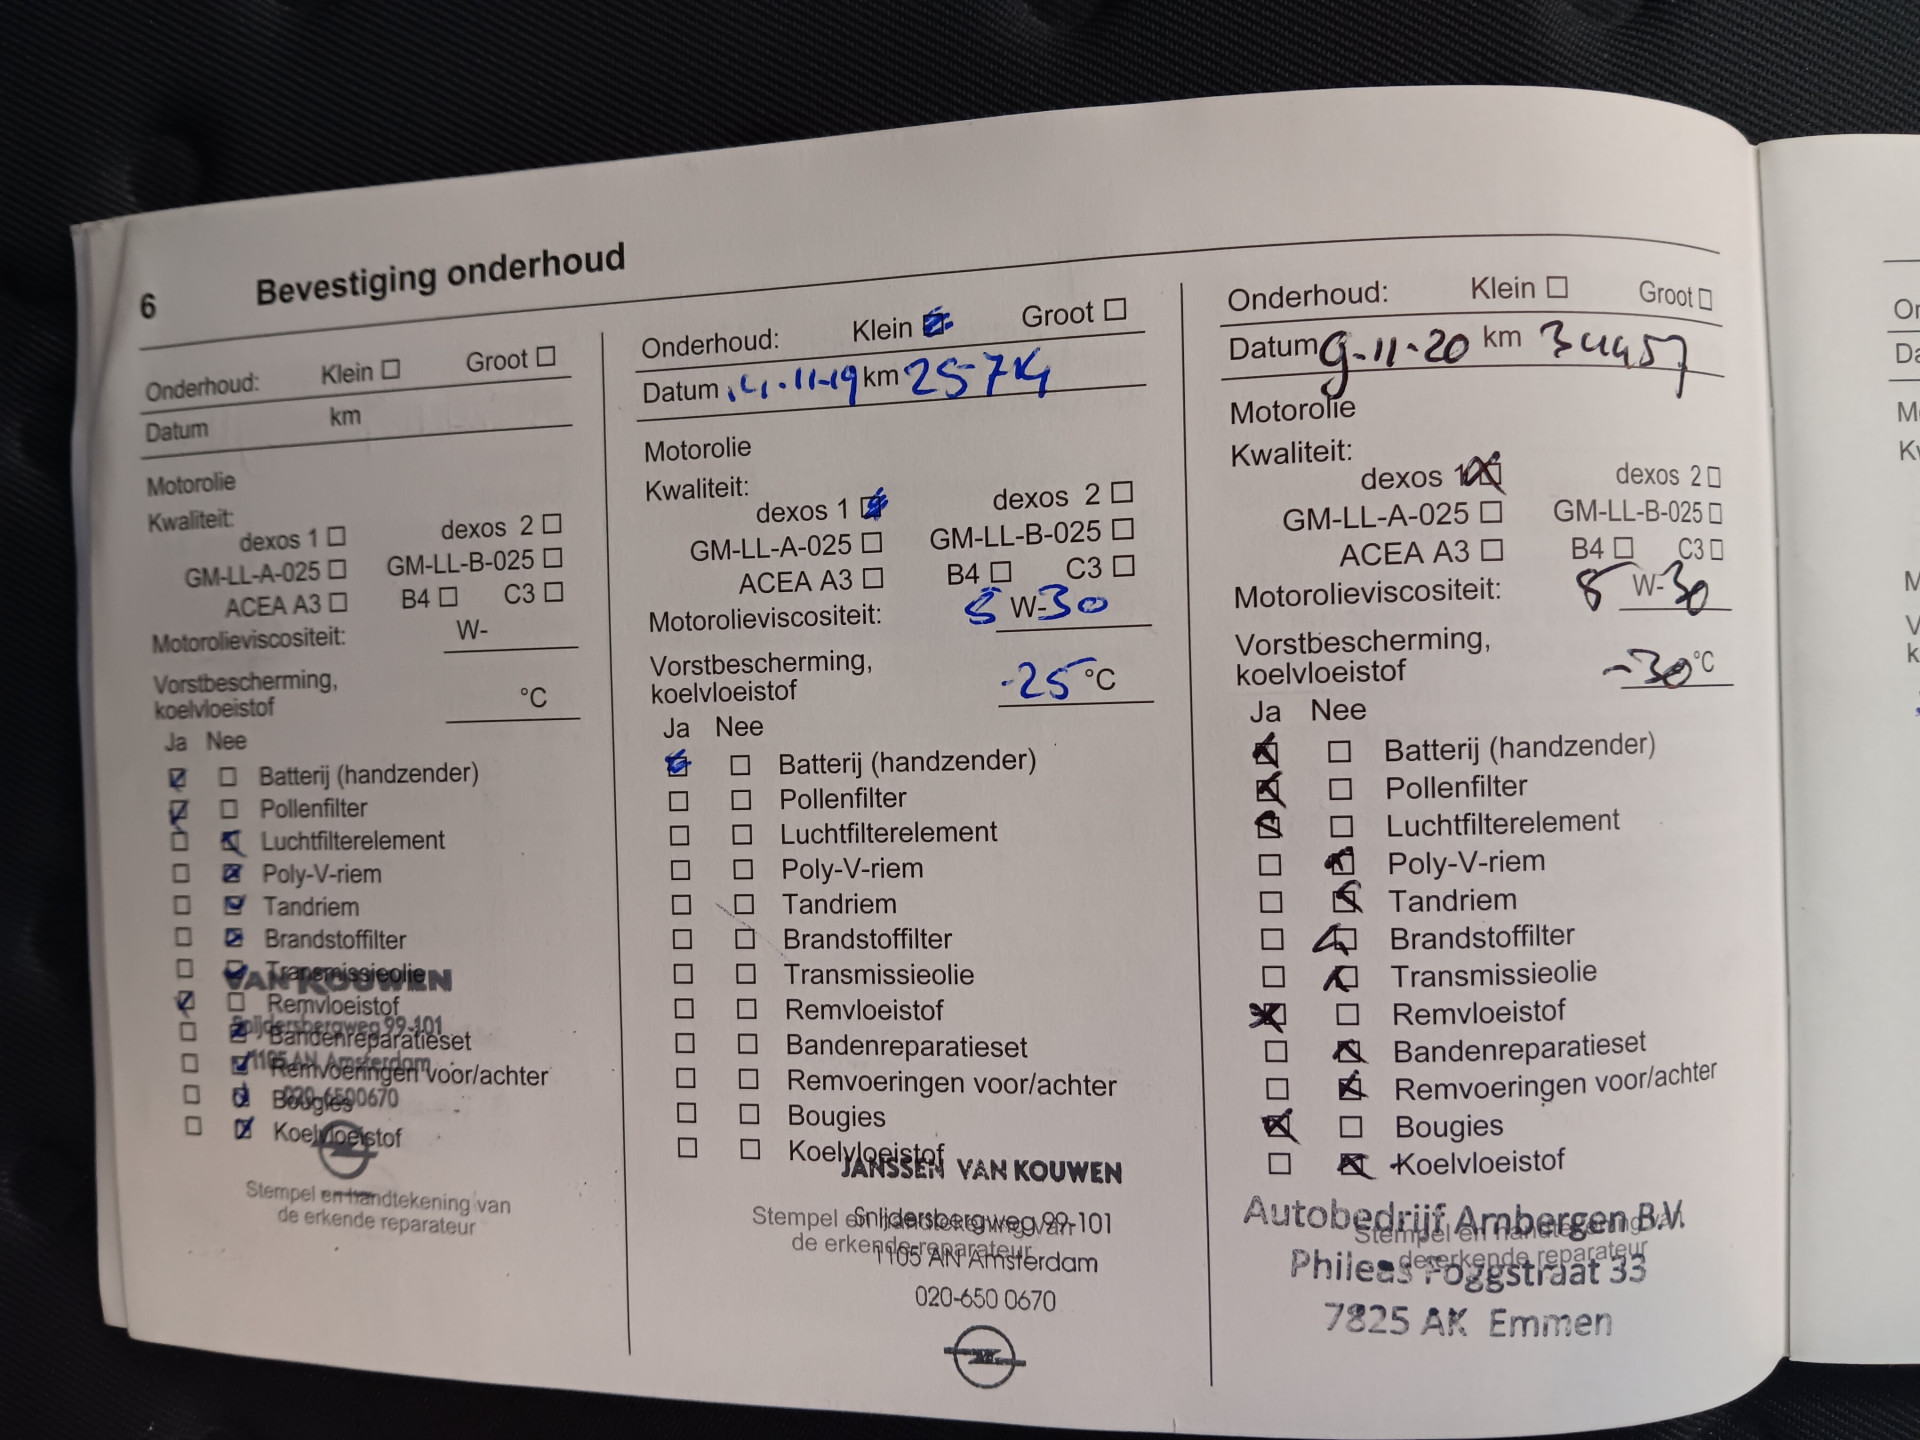 6 Bevestiging onderhoud
Onderhoud: Klein Groot
Datum km
Motorolie
Kwaliteit:
dexos 1 dexos 2
GM-LL-A-025 GM-LL-B-025
ACEA A3 B4 C3
Motorolieviscositeit: W-
Vorstbescherming,
koelvloeistof °C
Ja Nee
Batterij (handzender)
Pollenfilter
Luchtfilterelement
Poly-V-riem
Tandriem
Brandstoffilter
Transmissieolie
VAN KOUWEN
Remvloeistof
Snijdersbergweg 99-101
Bandenreparatieset
1105 AN Amsterdam
Remvoeringen voor/achter
020-6500670
Bougies
Koelvloeistof
Stempel en handtekening van
de erkende reparateur
Onderhoud: Klein Groot
Datum 11-19 km
Motorolie
Kwaliteit:
dexos 1 dexos 2
GM-LL-A-025 GM-LL-B-025
ACEA A3 B4 C3
Motorolieviscositeit: 5 W-30
Vorstbescherming,
koelvloeistof -25 °C
Ja Nee
Batterij (handzender)
Pollenfilter
Luchtfilterelement
Poly-V-riem
Tandriem
Brandstoffilter
Transmissieolie
Remvloeistof
Bandenreparatieset
Remvoeringen voor/achter
Bougies
Koelvloeistof
JANSSEN VAN KOUWEN
Stempel en handtekening van
Snijdersbergweg 99-101
de erkende reparateur
1105 AN Amsterdam
020-650 0670
Onderhoud: Klein Groot
Datum 9-11-20 km 34457
Motorolie
Kwaliteit:
dexos 1 dexos 2
GM-LL-A-025 GM-LL-B-025
ACEA A3 B4 C3
Motorolieviscositeit: 5 W-30
Vorstbescherming,
koelvloeistof -30 °C
Ja Nee
Batterij (handzender)
Pollenfilter
Luchtfilterelement
Poly-V-riem
Tandriem
Brandstoffilter
Transmissieolie
Remvloeistof
Bandenreparatieset
Remvoeringen voor/achter
Bougies
Koelvloeistof
Autobedrijf Ambergen B.V.
Stempel en handtekening van
de erkende reparateur
Phileas Foggstraat 33
7825 AK Emmen